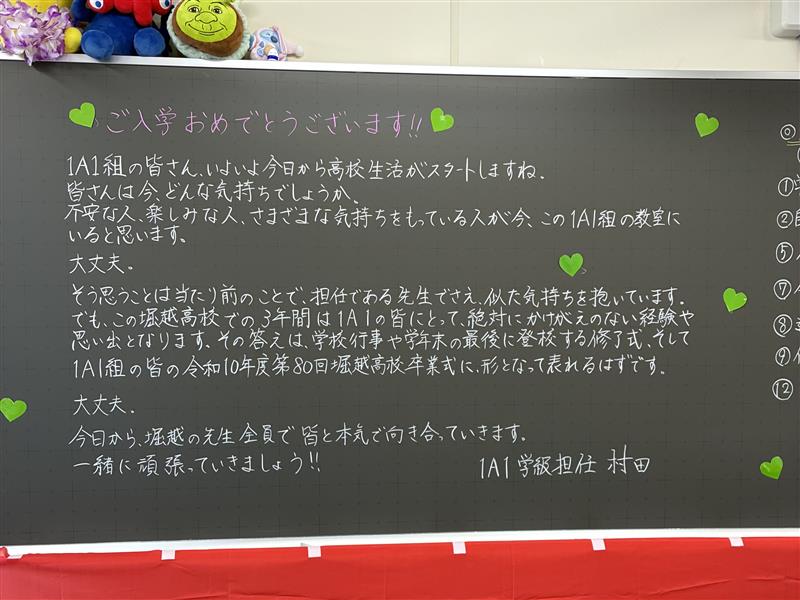 ご入学おめでとうございます!!
1A1組の皆さん、いよいよ今日から高校生活がスタートしますね。
皆さんは今、どんな気持ちでしょうか。
不安な人、楽しみな人、さまざまな気持ちをもっている人が今、この1A1組の教室に
いると思います。
大丈夫。
そう思うことは当たり前のことで、担任である先生でさえ、似た気持ちを抱いています。
でも、この堀越高校での3年間は1A1の皆にとって、絶対にかけがえのない経験や
思い出となります。その答えは、学校行事や学年末の最後に登校する修了式、そして
1A1組の皆の令和10年度第80回堀越高校卒業式に、形となって表れるはずです。
大丈夫。
今日から、堀越の先生全員で皆と本気で向き合っていきます。
一緒に頑張っていきましょう!!
1A1学級担任 村田
◎
①
②
⑤
⑦
⑧
⑨
⑫